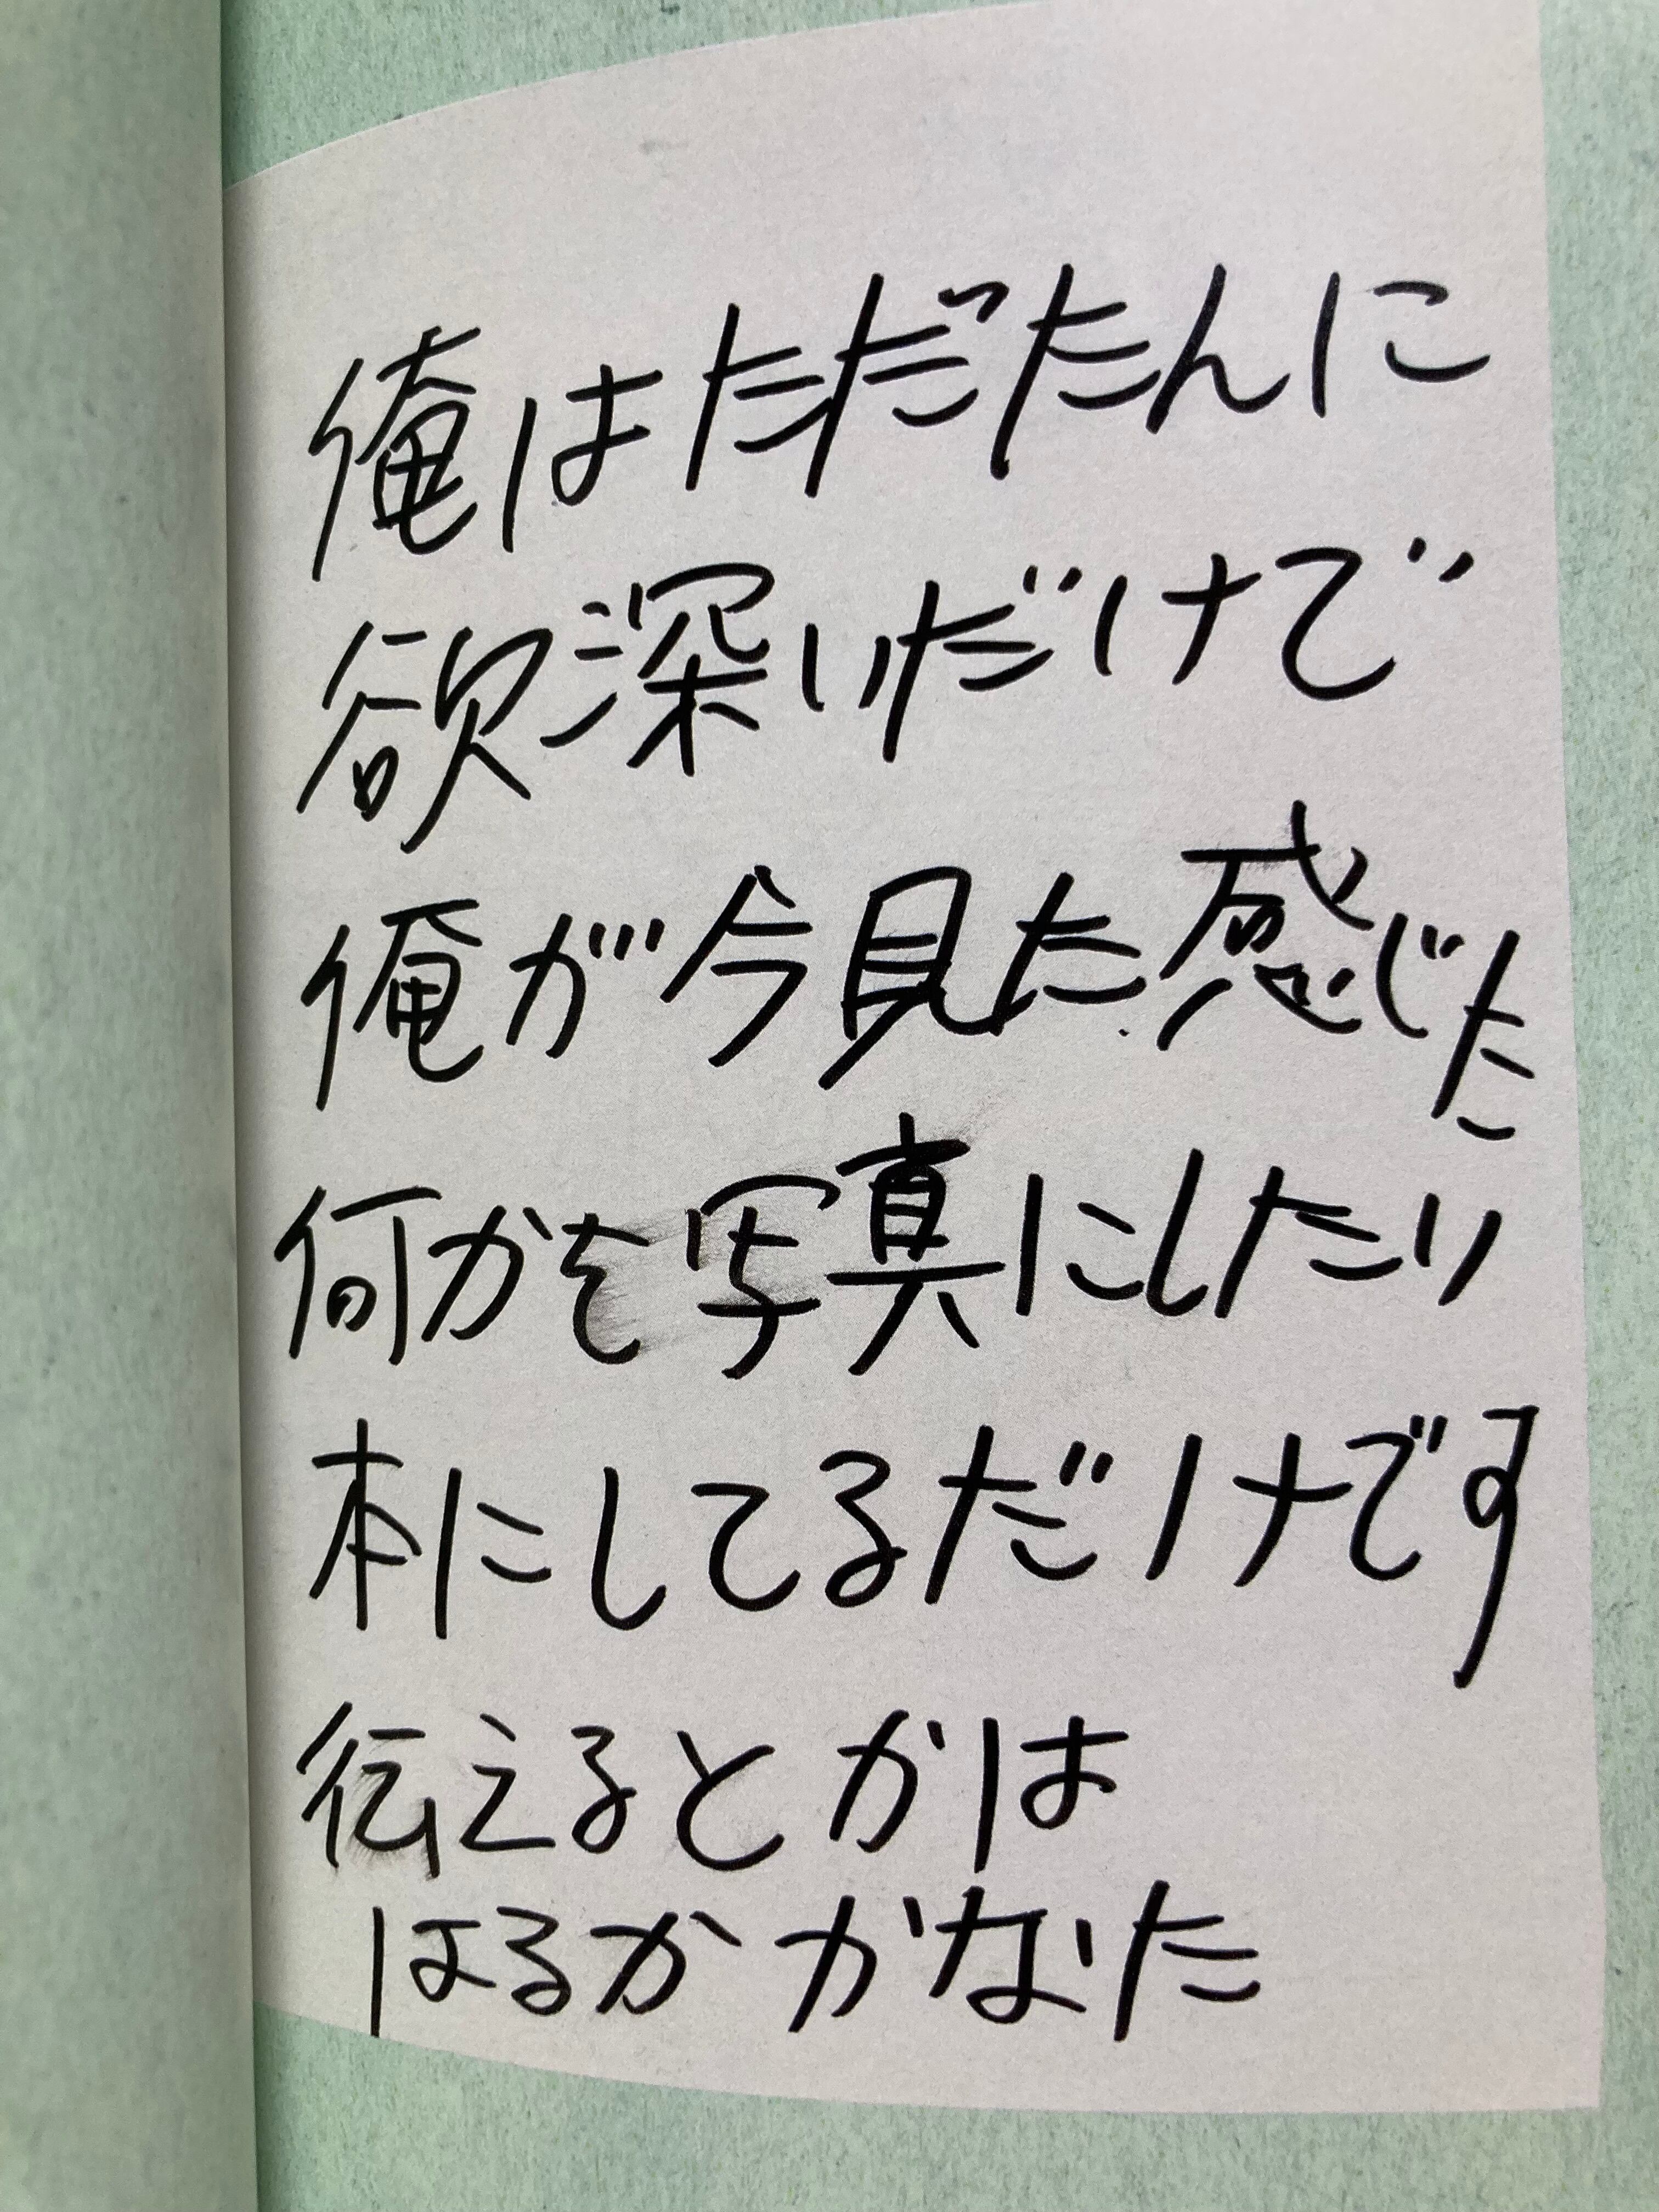 俺はただたんに
欲深いだけで
俺が今見た感じた
何かを写真にしたり
本にしてるだけです
伝えるとかは
はるかかなた